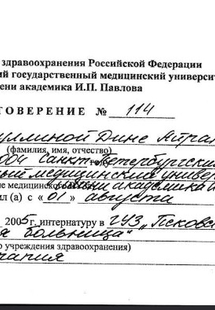 здравоохранения Российской Федерации
ий государственный медицинский университ
ени академика И.П. Павлова
ТОВЕРЕНИЕ № 114
уллиной Дине
(фамилия, имя, отчество)
004 Санкт-Петербургски
ный медицинский универ
ие медицинско академика И
ил (а) с «01» августа
2005г, интернатуру в ГУЗ „Псковск
я больница"
о учреждения здравоохранения)
рапия